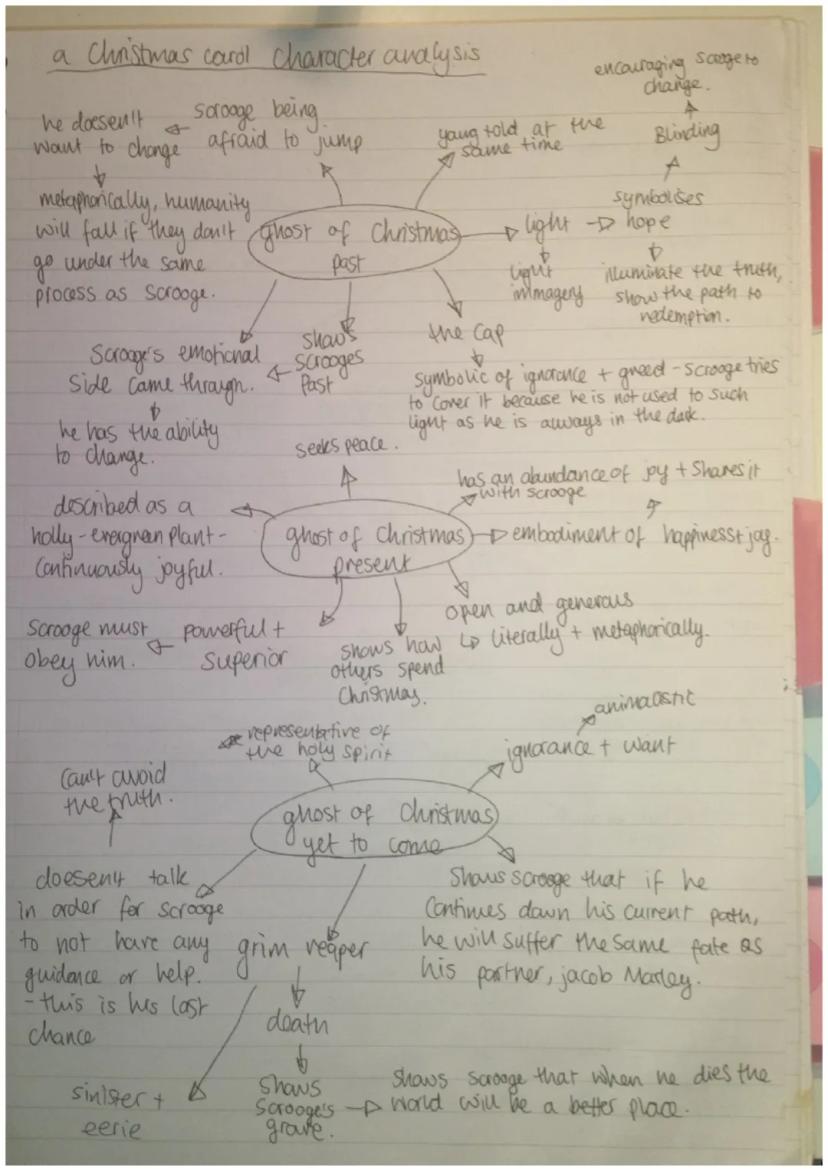 a Christmas carol character analysis
encouraging scrooge to
change.
he doesen't
want to change
scrooge being
afraid to jump
young + old at the
same time
Blinding
metaphorically, humanity
will fall if they don't
go under the same
process as scrooge.
ghost of Christmas
past
light
symbolises
hope
light
immagery
illuminate the truth,
show the path to
redemption.
Scrooge's emotional
side came through.
shows
scrooges
past
the cap
symbolic of ignorance + greed - scrooge tries
to cover it because he is not used to such
light as he is always in the dark.
he has the ability
to change.
seeks peace.
has an abundance of joy + shares it
with scrooge
described as a
holly - evergreen plant -
continuously joyful.
ghost of Christmas
present
embodiment of happiness + joy.
Scrooge must
obey him.
powerful +
superior
shows how
others spend
Christmas.
open and generous
literally + metaphorically.
representative of
the holy spirit
animalistic
ignorance + want
can't avoid
the truth.
ghost of Christmas
yet to come
doesen't talk
in order for scrooge
to not have any
guidance or help.
- this is his last
chance
grim reaper
Shows scrooge that if he
continues down his current path,
he will suffer the same fate as
his partner, jacob Marley.
death
sinister +
eerie
shows
Scrooge's
grave.
shows scrooge that when he dies the
world will be a better place.